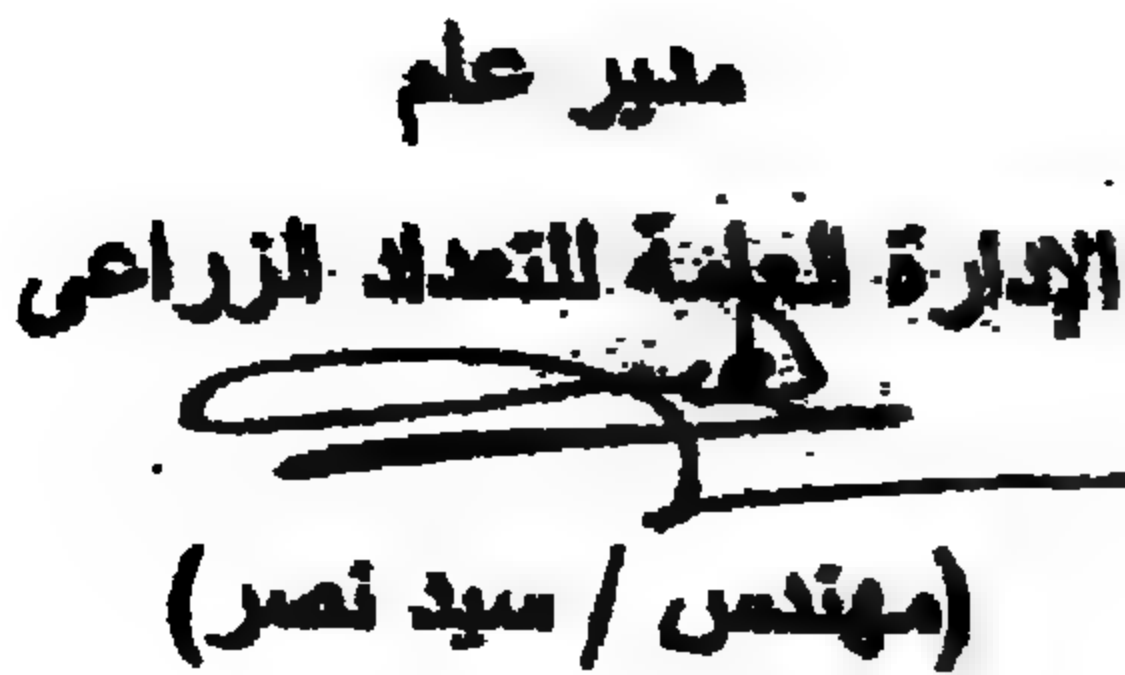 مدير عام
الإدارة العامة للتعداد الزراعى
(مهندس / سيد نصر)